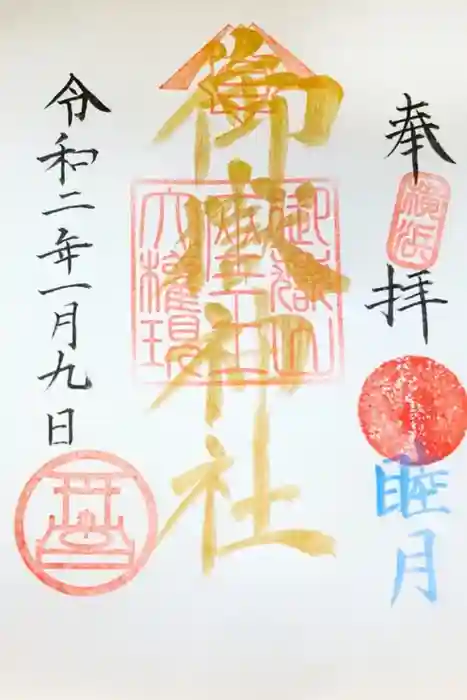 奉拝
横浜
睦月
御嶽神社
御嶽山
藏王
大權現
令和二年一月九日